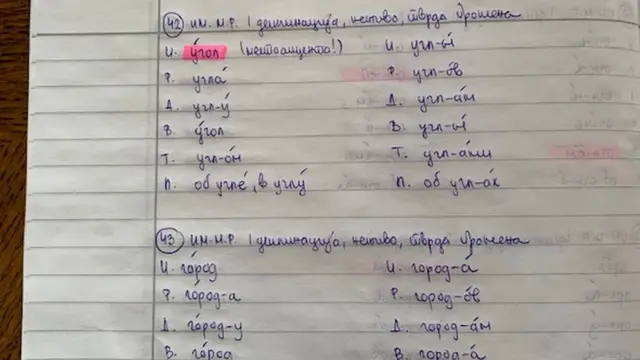 42 ИМ. М.Р. I деклинација, неживо, тврда промена
И. у́гол (нетоацента!) И. угл-ы́
Р. угла́ Р. угл-о́в
Д. угл-у́ Д. угл-а́м
В. у́гол В. угл-ы́
Т. угл-о́м Т. угл-а́ми
П. об угле́, в углу́ П. об угл-а́х
43 ИМ. М.Р. I деклинација, неживо, тврда промена
И. го́род И. город-а́
Р. го́род-а Р. город-о́в
Д. го́род-у Д. город-а́м
В. го́род В. город-а́